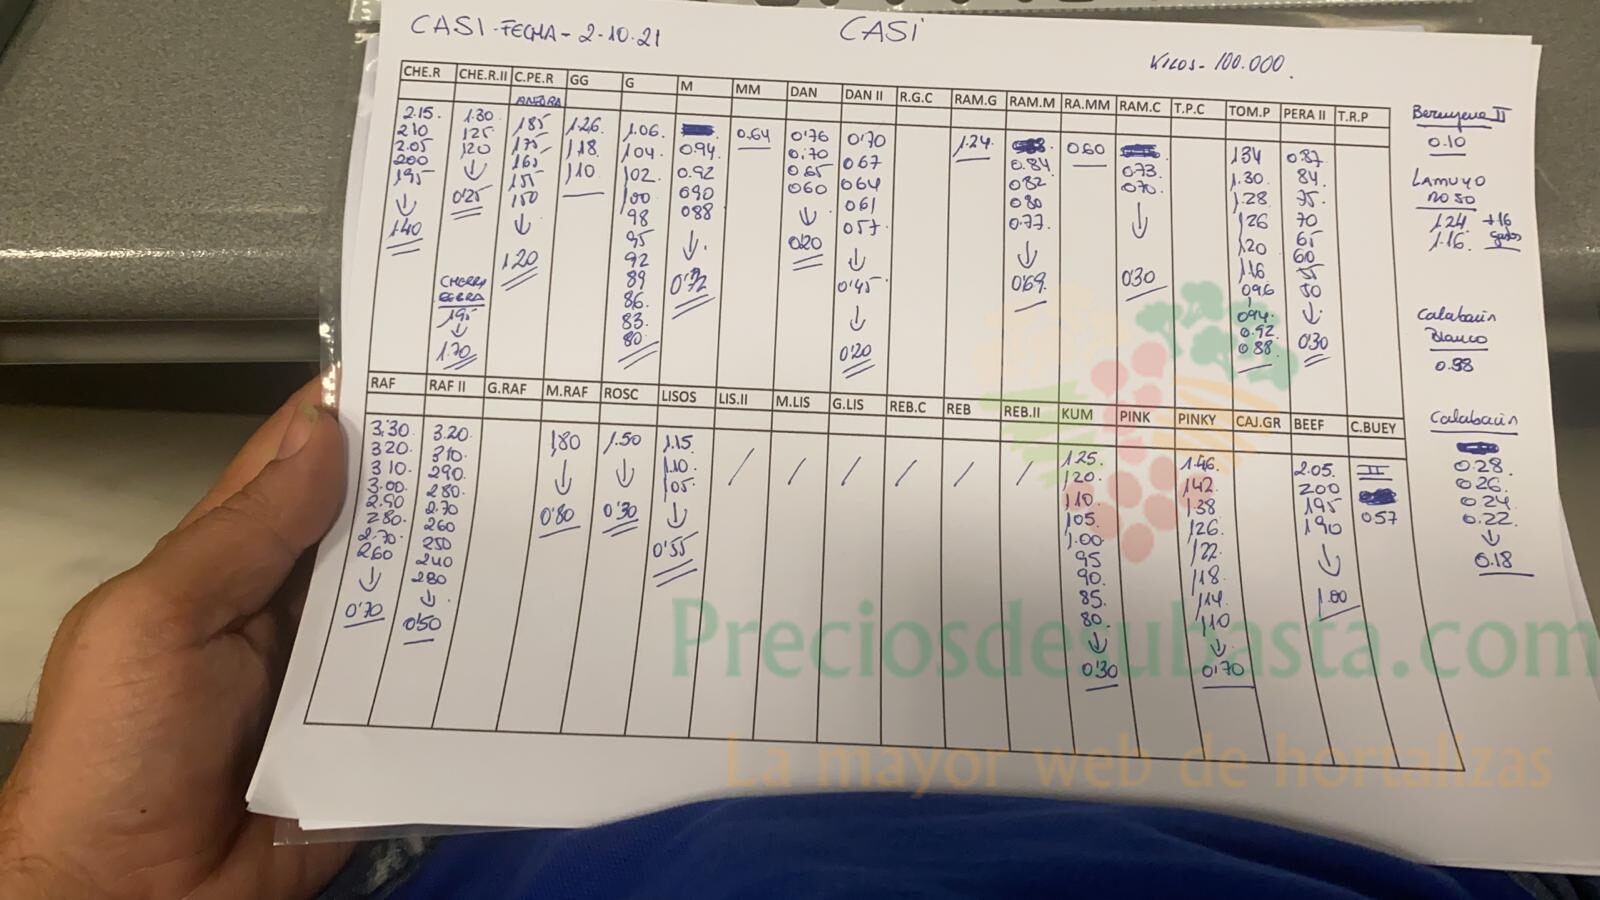 CASI - FECHA - 2-10-21
CASI
KILOS - 100.000.
CHE.R CHE.R.II C.PE.R GG G M MM DAN DAN II R.G.C RAM.G RAM.M RA.MM RAM.C T.P.C TOM.P PERA II T.R.P
2.15. 210 2.05 200 195 ↓ 1.40
1.30 125 120 ↓ 0'25
CHERRY
195 ↓ 1.70
185 175 165 155 150 ↓ 1.20
1.26 1.18 1.10
1.06. 104. 102. 100 98 95 92 89 86. 83. 80.
0.94 0.92 090 088 ↓ 0'72
0.64
0'76 0.70 0.65 060 ↓ 020
0'70 067 064 061 057 ↓ 0'45 ↓ 0'20
1.24
0.84 082 080 0.77 ↓ 0'69
060
0.73 070 ↓ 030
134 1.30 1.28 126 120 116 096 094 0.92 088
0.87 84 75 70 65 60 55 50 ↓ 030
RAF RAF II G.RAF M.RAF ROSC LISOS LIS.II M.LIS G.LIS REB.C REB REB.II KUM PINK PINKY CAJ.GR BEEF C.BUEY
3.30 320 310 3.00 2.90 280 2.70 260 ↓ 0'70
3.20 310 290 280 2.70 260 250 240 230 ↓ 0'50
1,80 ↓ 0'80
1.50 ↓ 0'30
1.15 1.10 105 ↓ 0'55
/ / / / / /
125. 120. 110. 105. 1.00. 95 90. 85. 80. ↓ 030
1.46. 142 138 126 122 118 114 110 ↓ 0'70
2.05. 200 195 190 ↓ 1.00
II
057
Berenjena II
0.10
LAMUYO
ROJO
124 +16
1.16. gastos
Calabacin
Blanco
0.38
Calabacin
0.28.
0.26.
0.24
0.22.
↓
0.18
Preciosdesubasta.com
La mayor web de hortalizas